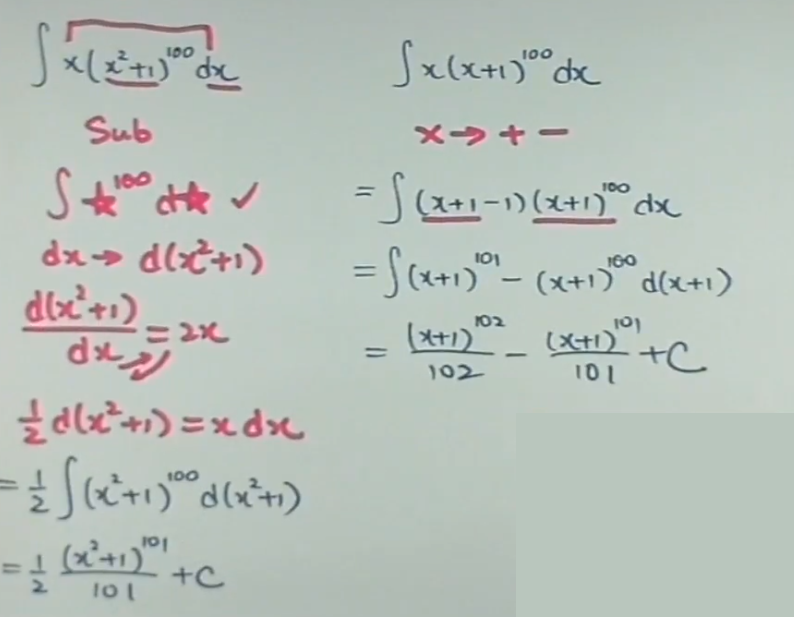 ∫ x(x²+1)¹⁰⁰ dx
Sub
∫ ★¹⁰⁰ d★ ✓
dx → d(x²+1)
d(x²+1)/dx = 2x
½ d(x²+1) = x dx
= ½ ∫ (x²+1)¹⁰⁰ d(x²+1)
= ½ (x²+1)¹⁰¹/101 + C
∫ x(x+1)¹⁰⁰ dx
x → + −
= ∫ (x+1−1)(x+1)¹⁰⁰ dx
= ∫ (x+1)¹⁰¹ − (x+1)¹⁰⁰ d(x+1)
= (x+1)¹⁰²/102 − (x+1)¹⁰¹/101 + C